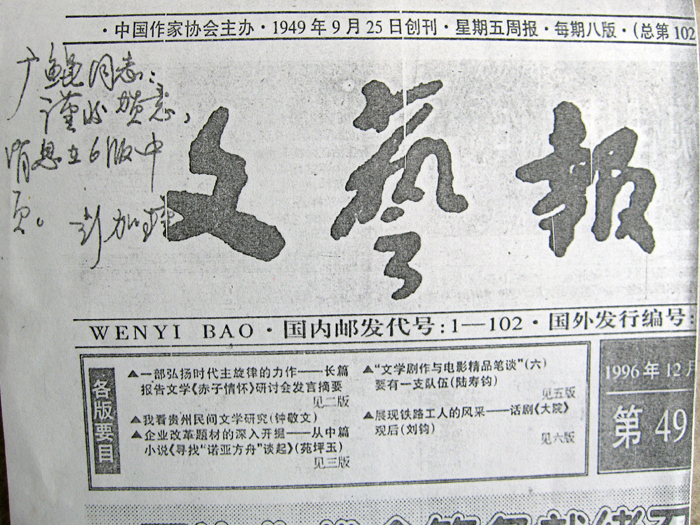 ·中国作家协会主办·1949年9月25日创刊·星期五周报·每期八版·(总第102
同志:
谨以贺意,
消息在6版中
页。
文藝報
WENYI BAO·国内邮发代号:1—102·国外发行编号:
各版要目
▲一部弘扬时代主旋律的力作——长篇
报告文学《赤子情怀》研讨会发言摘要
见二版
▲我看贵州民间文学研究(钟敬文)
▲企业改革题材的深入开掘——从中篇
小说《寻找“诺亚方舟”谈起》(苑坪玉)
见三版
▲“文学剧作与电影精品笔谈”(六)
要有一支队伍(陆寿钧)
见五版
▲展现铁路工人的风采——话剧《大院》
观后(刘钧)
见六版
1996年12月
第49